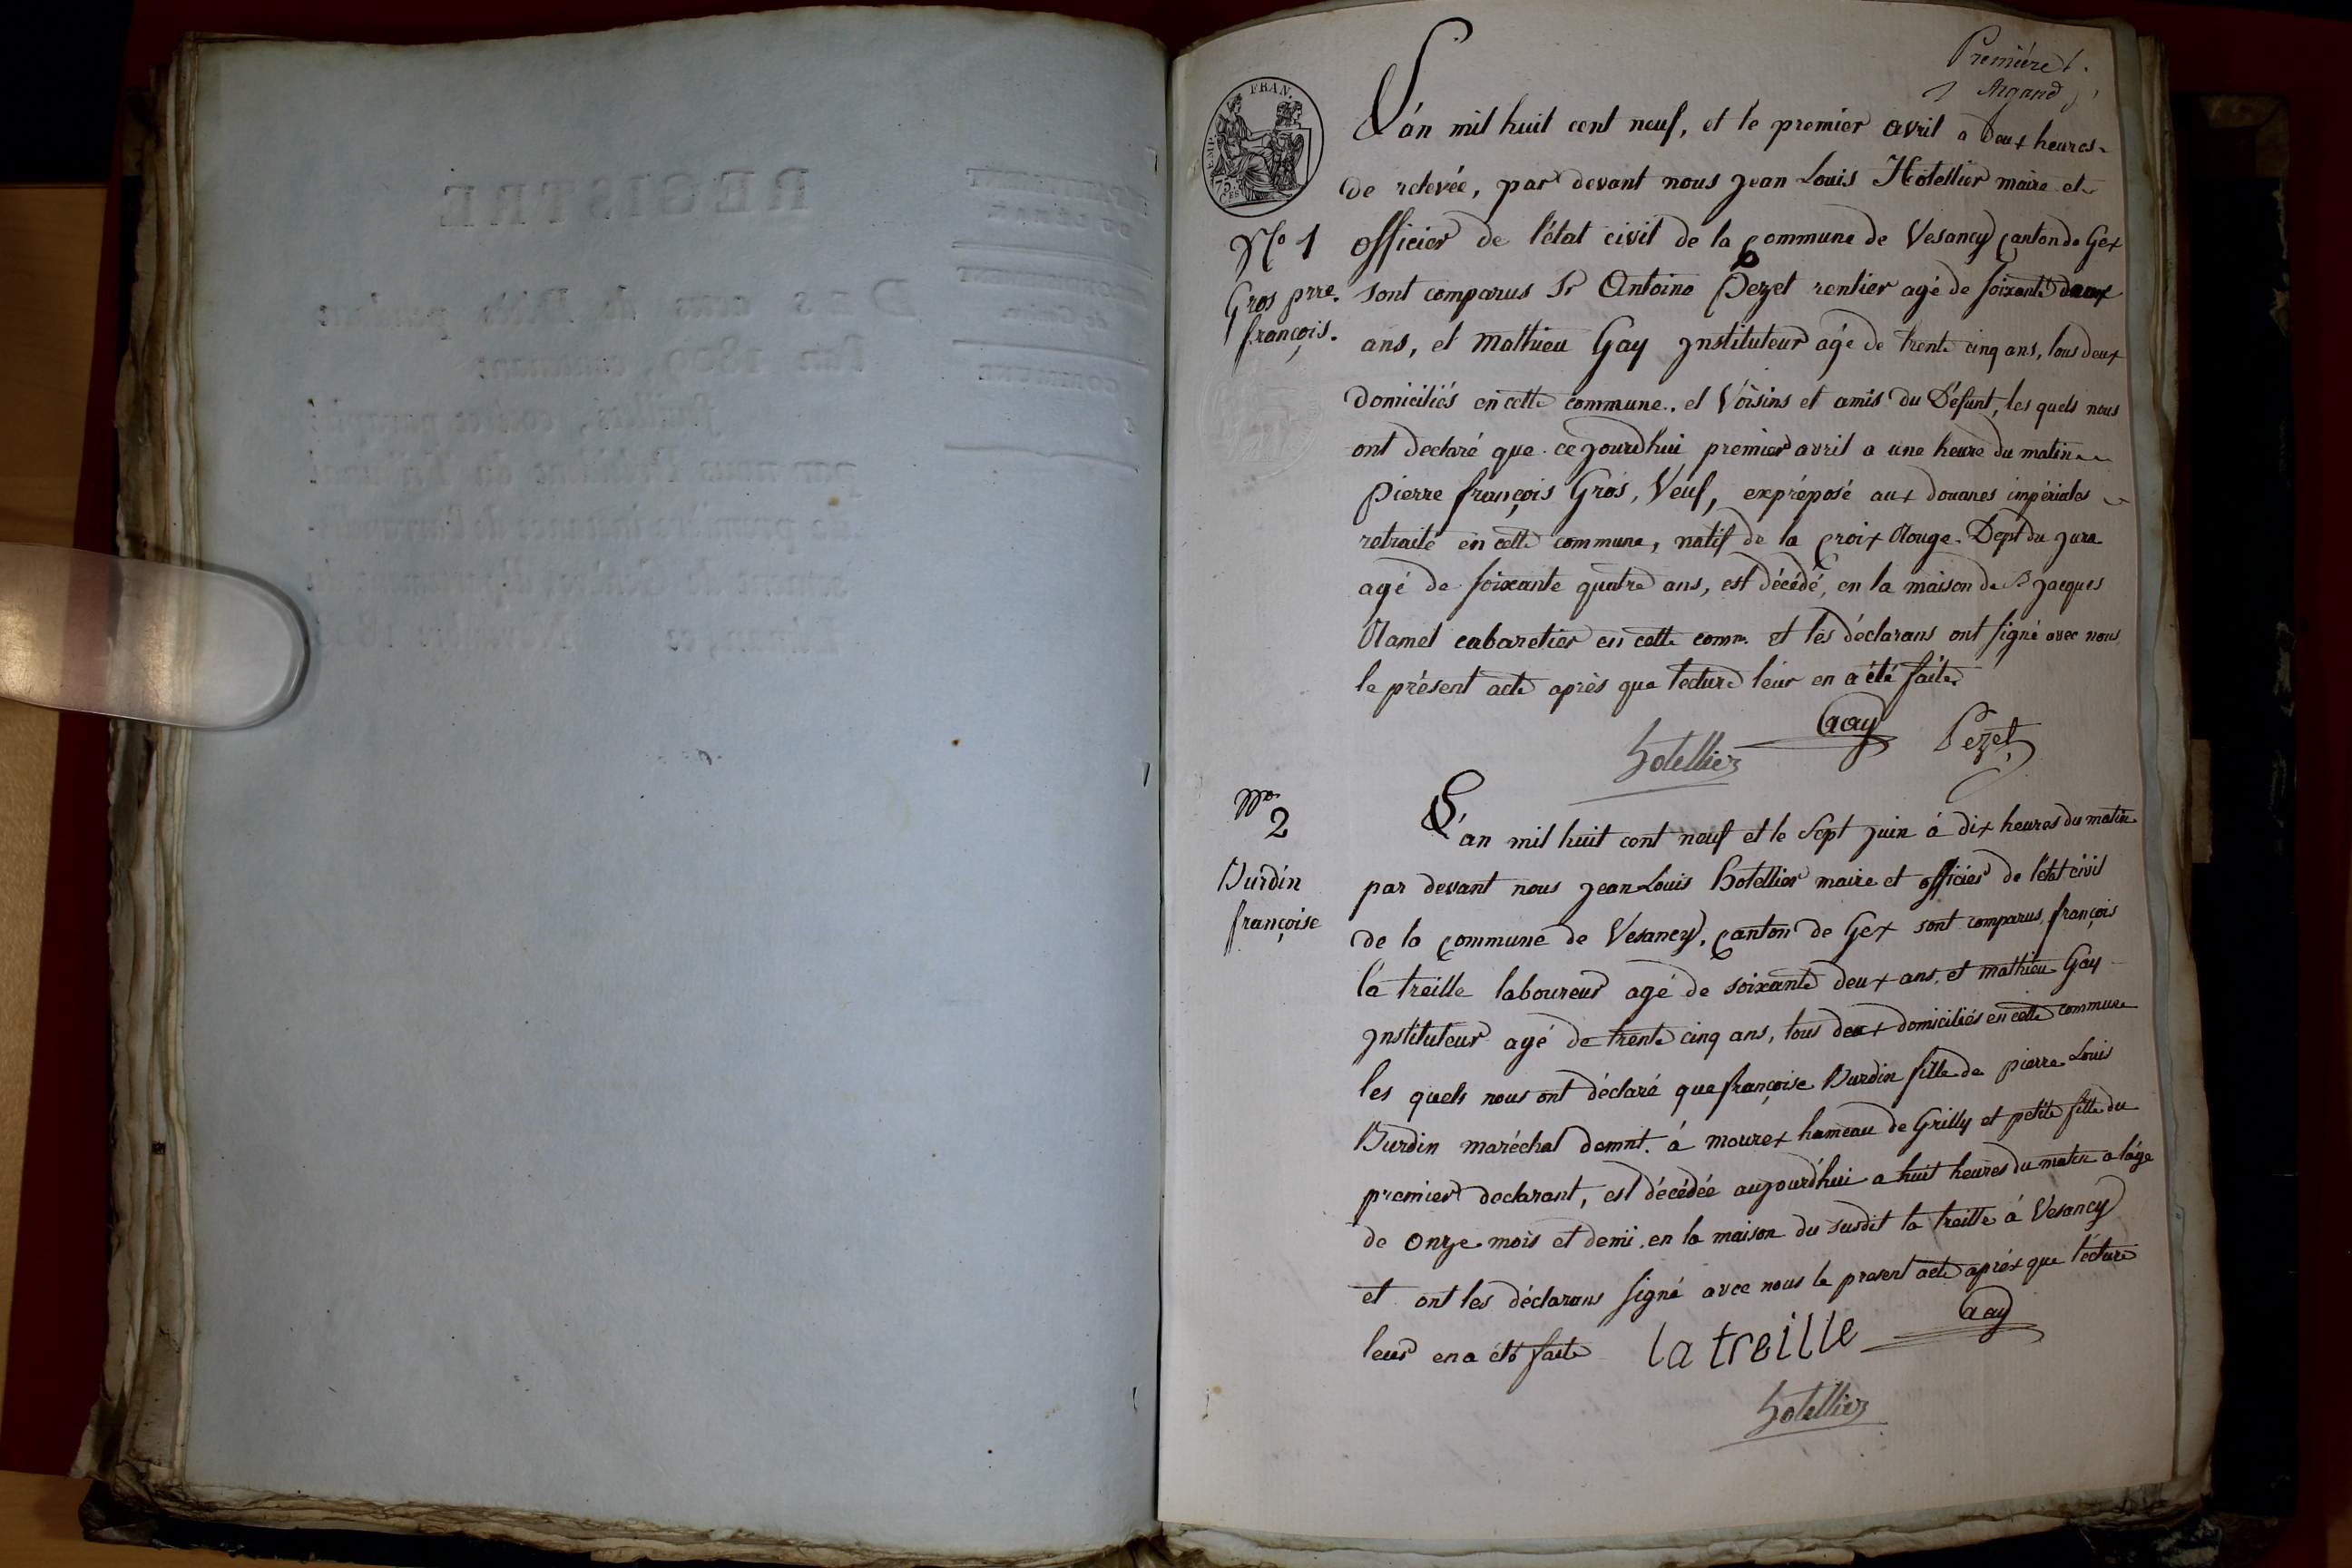 Première
Argand
FRAN.
EMP.
75.
CES
L'an mil huit cent neuf, et le premier avril a deux heures
de relevée, par devant nous jean Louis Hotellier maire et
No 1
officier de l'état civil de la commune de Vesancy canton de Gex
Gros prre.
françois.
sont comparus Sr Antoine Pezet rentier agé de soixante deux
ans, et mathieu Gay jnstituteur agé de trente cinq ans, tous deux
domiciliés en cette commune, et Voisins et amis du Défunt, les quels nous
ont declaré que cejourdhui premier avril a une heure du matin
pierre françois Gros, Veuf, expréposé aux douanes impériales
retraité en cette commune, natif de la croix Rouge. Dept du jura
agé de soixante quatre ans, est décédé, en la maison de jacques
Ramel cabaretier en cette comm. et les déclarans ont signé avec nous
le présent acte après que lecture leur en a été faite
Gay
Pezet
hotellier
No
2
L'an mil huit cent neuf et le Sept juin à dix heures du matin
Burdin
françoise
par devant nous jean Louis hotellier maire et officier de l'état civil
de la commune de Vesancy, canton de Gex sont comparus, françois
la treille laboureur agé de soixante deux ans, et mathieu Gay
jnstituteur agé de trente cinq ans, tous deux domiciliés en cette commune
les quels nous ont déclaré que françoise Burdin fille de pierre Louis
Burdin maréchal demnt. à mourex hameau de Grilly et petite fille du
premier declarant, est décédée aujourd'hui a huit heures du matin a l'âge
de onze mois et demi, en la maison du susdit la treille à Vesancy
et ont les déclarans signé avec nous le present acte après que lecture
leur en a été faite
la treille
Gay
hotellier